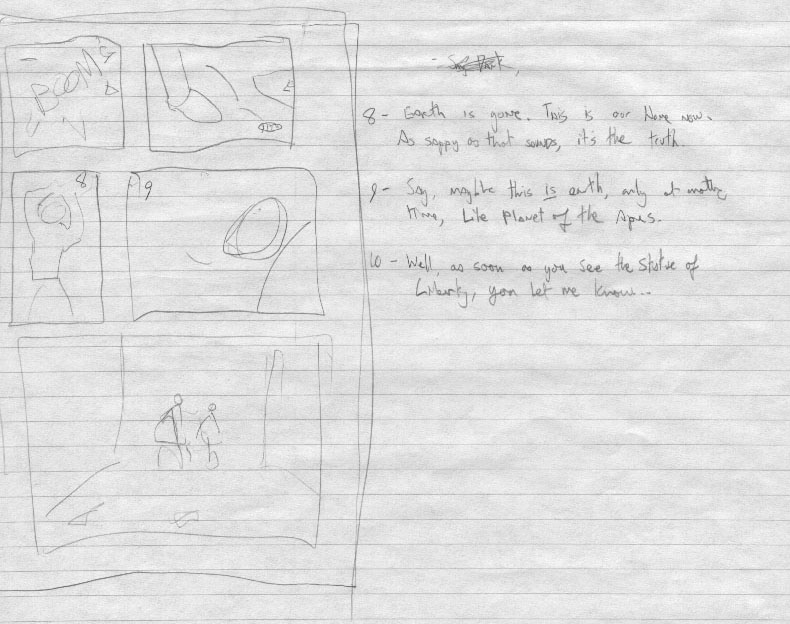 BOOM
8
9
8- Earth is gone. This is our Home now.
As sappy as that sounds, it's the truth.
9- Say, maybe this is earth, only at another
time, Like Planet of the Apes.
10- Well, as soon as you see the Statue of
Liberty, you let me know...